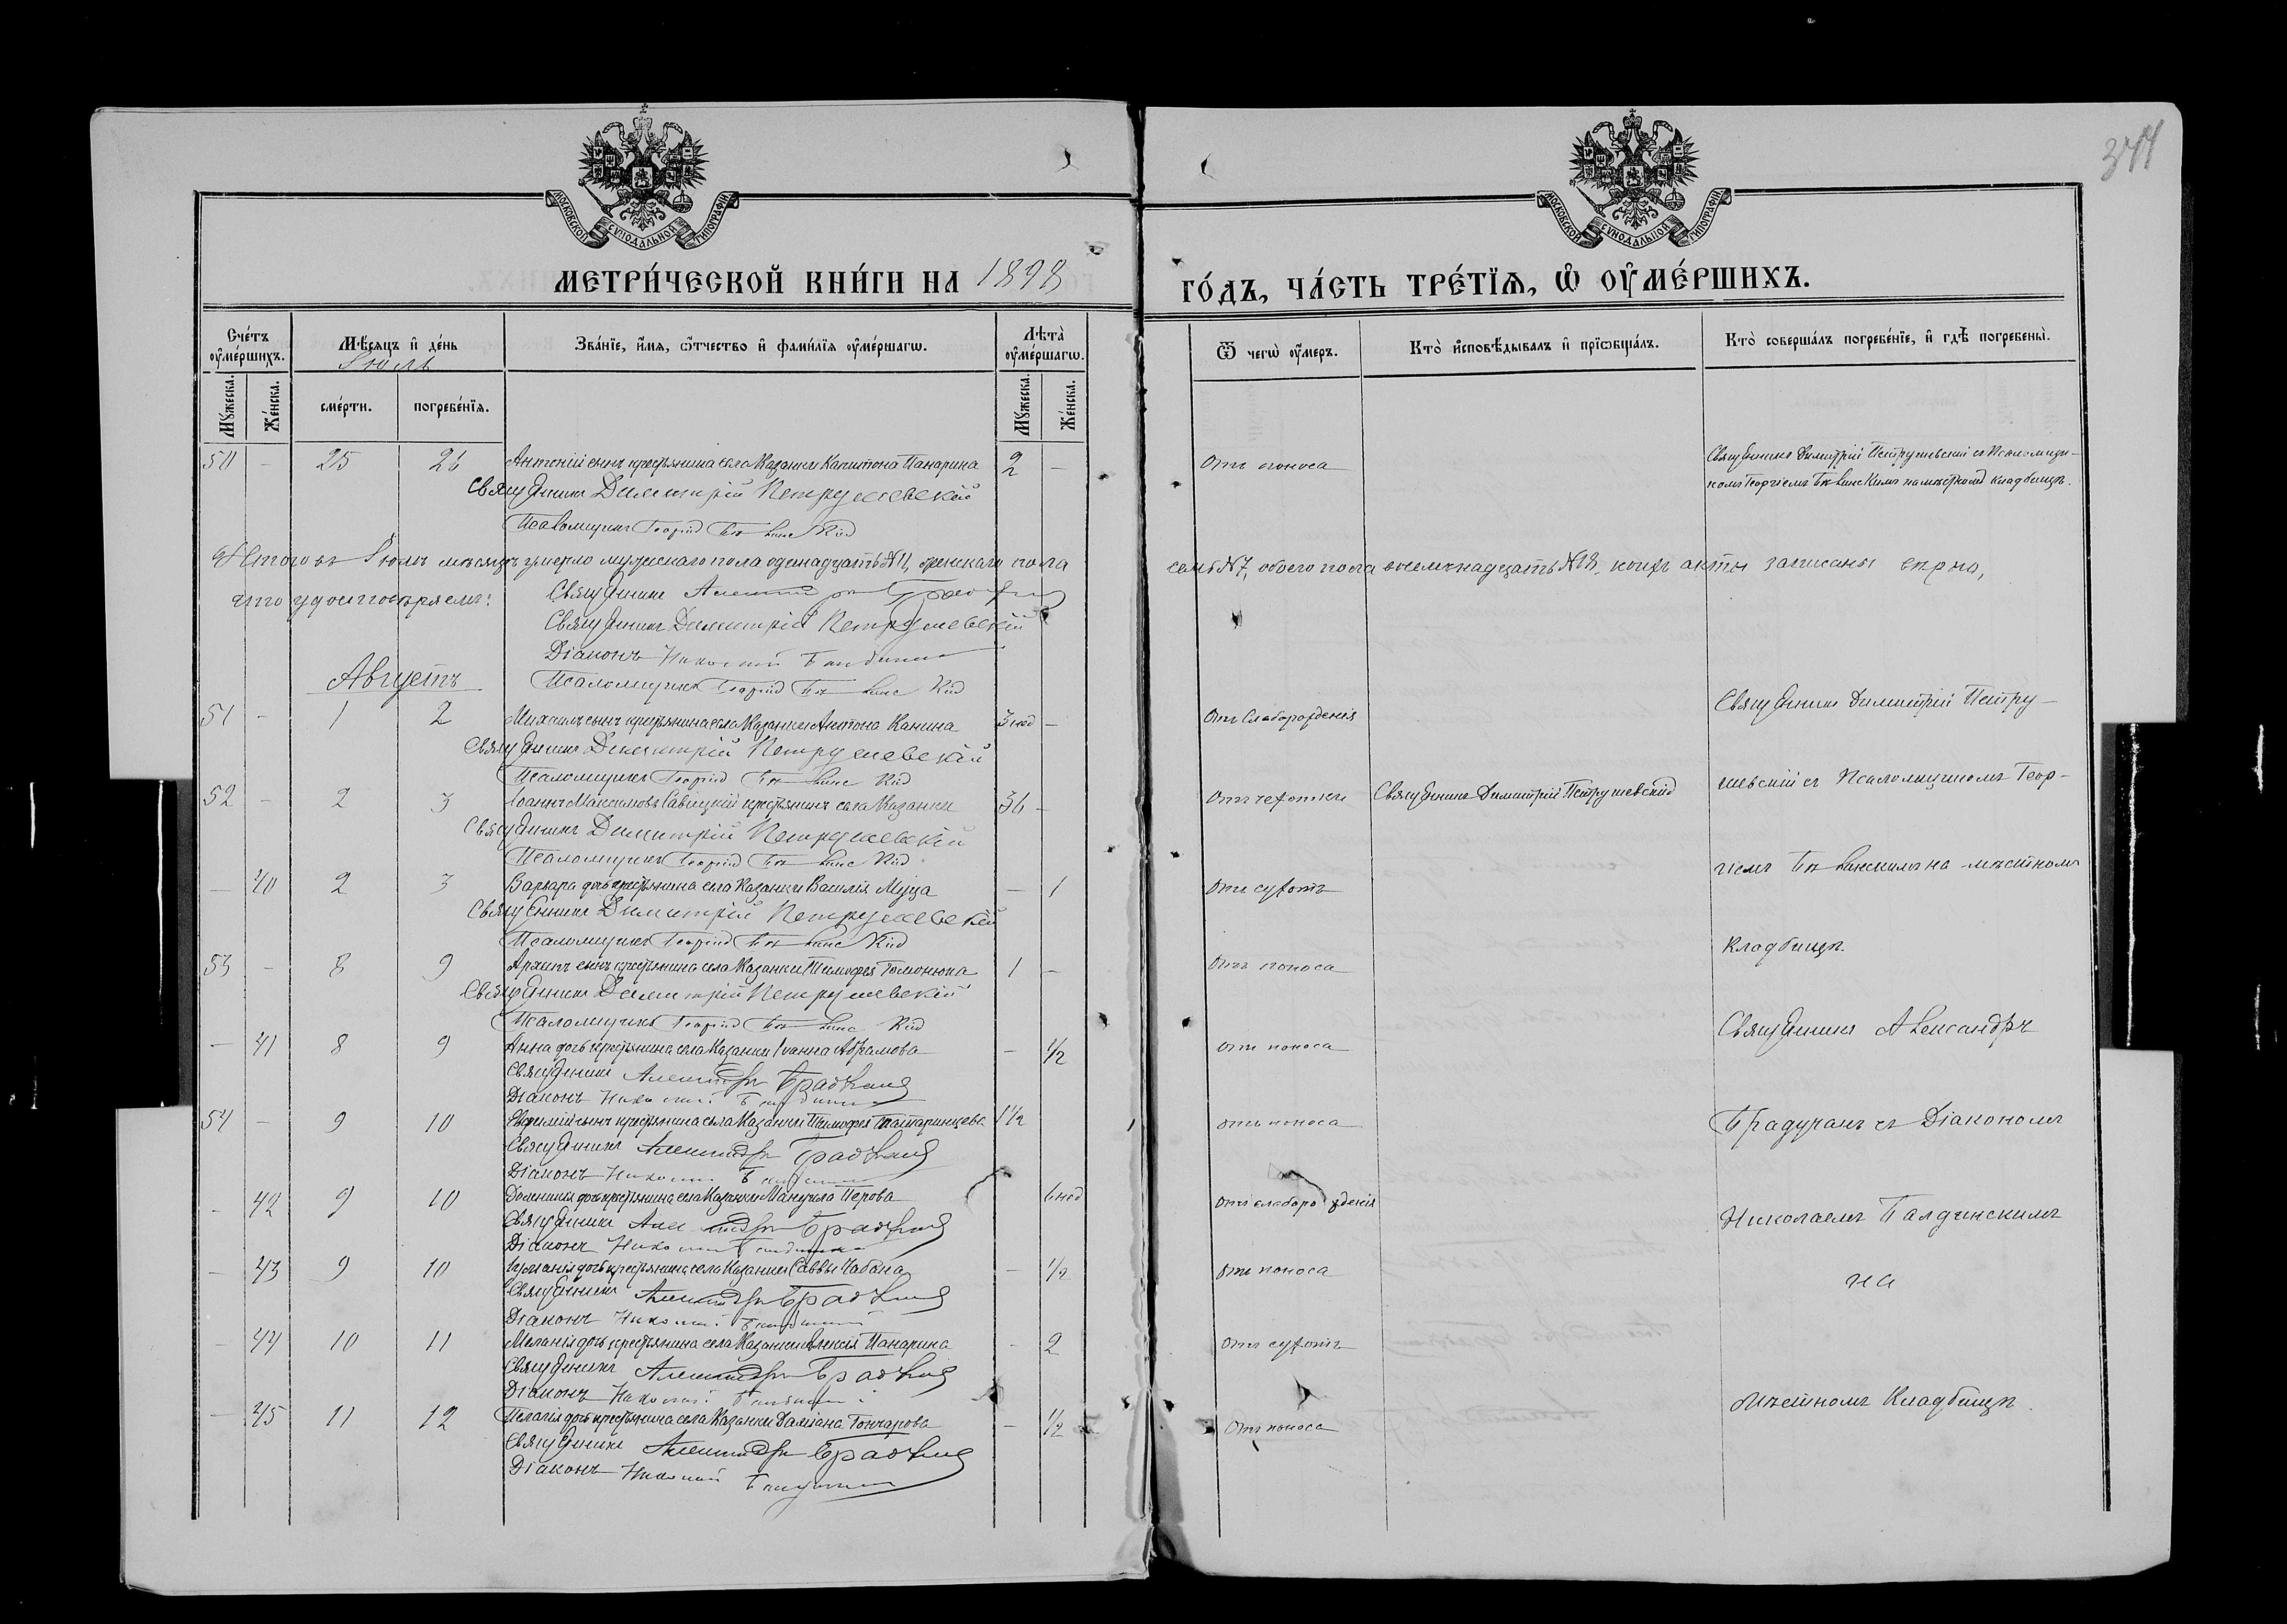 344
МОСКОВСКОЙ СѴНОДАЛЬНОЙ ТИПОГРАФІИ
МОСКОВСКОЙ СѴНОДАЛЬНОЙ ТИПОГРАФІИ
МЕТРИ́ЧЕСКОЙ КНИ́ГИ НА 1898 ГО́ДЪ, ЧА́СТЬ ТРЕ́ТЇѦ, Ѡ҆ ОУ҆МЕ́РШИХЪ.
Сче́тъ оу҆ме́ршихъ. Мѣ́сѧцъ и҆ де́нь Зва́нїе, и҆́мѧ, ѻ҆́тчество и҆ фами́лїѧ оу҆ме́ршагѡ. Лѣ́та оу҆ме́ршагѡ. Ѿ чегѡ̀ оу҆́меръ. Кто̀ и҆сповѣ́дывалъ и҆ прїѡбща́лъ. Кто̀ соверша́лъ погребе́нїе, и҆ гдѣ̀ погребены̀.
Іюль
Мꙋ́жеска. Же́нска. сме́рти. погребе́нїѧ. Мꙋ́жеска. Же́нска.
50 - 25 26 Антоній сынъ крестьянина села Казанки Капитона Панарина 2 - Отъ поноса Священникъ Димитрій Петрушевскій съ Псаломщи-
Священникъ Димитрій Петрушевскій комъ Георгіемъ на мѣстномъ кладбищѣ.
Псаломщикъ Георгій
Итого въ Іюлѣ мѣсяцѣ умерло мужскаго пола одинадцать №11, женскаго пола семь №7, обоего пола восемьнадцать №18, коихъ акты записаны вѣрно,
что удостовѣряемъ: Священникъ Александръ
Священникъ Димитрій Петрушевскій
Діаконъ Николай
Августъ Псаломщикъ Георгій
51 - 1 2 Михаилъ сынъ крестьянина села Казанки Антона Канина 3 нед - Отъ слаборожденія Священникъ Димитрій Петру-
Священникъ Димитрій Петрушевскій
Псаломщикъ Георгій
52 - 2 3 Іоаннъ Максимовъ Савицкій крестьянинъ села Казанки 36 - Отъ чехотки Священникъ Димитрій Петрушевскій шевскій съ Псаломщикомъ Геор-
Священникъ Димитрій Петрушевскій
Псаломщикъ Георгій
- 40 2 3 Варвара дочь крестьянина села Казанки Василія Муца - 1 Отъ сухотъ гіемъ на мѣстномъ
Священникъ Димитрій Петрушевскій
Псаломщикъ Георгій
53 - 8 9 Архипъ сынъ крестьянина села Казанки Тимофея Томонюка 1 - Отъ поноса Кладбищѣ.
Священникъ Димитрій Петрушевскій
Псаломщикъ Георгій
- 41 8 9 Анна дочь крестьянина села Казанки Іоанна Абрамова - 1/2 отъ поноса Священникъ Александръ
Священникъ Александръ
Діаконъ Николай
54 - 9 10 Евфимій сынъ крестьянина села Казанки Тимофея Татаринцева 1 1/2 отъ поноса Брадучанъ съ Діакономъ
Священникъ Александръ
Діаконъ Николай
- 42 9 10 Домникія дочь крестьянина села Казанки Мануила Перова 6 нед отъ слаборожденія Николаемъ Балдинскимъ
Священникъ Александръ
Діаконъ Николай
- 43 9 10 дочь крестьянина села Казанки Саввы Чабана - 1/2 отъ поноса на
Священникъ Александръ
Діаконъ Николай
- 44 10 11 Меланія дочь крестьянина села Казанки Алексія Панарина - 2 отъ сухотъ
Священникъ Александръ
Діаконъ Николай
- 45 11 12 Пелагія дочь крестьянина села Казанки Даміана Гончарова - 1/2 Отъ поноса Мѣстномъ Кладбищѣ.
Священникъ Александръ
Діаконъ Николай